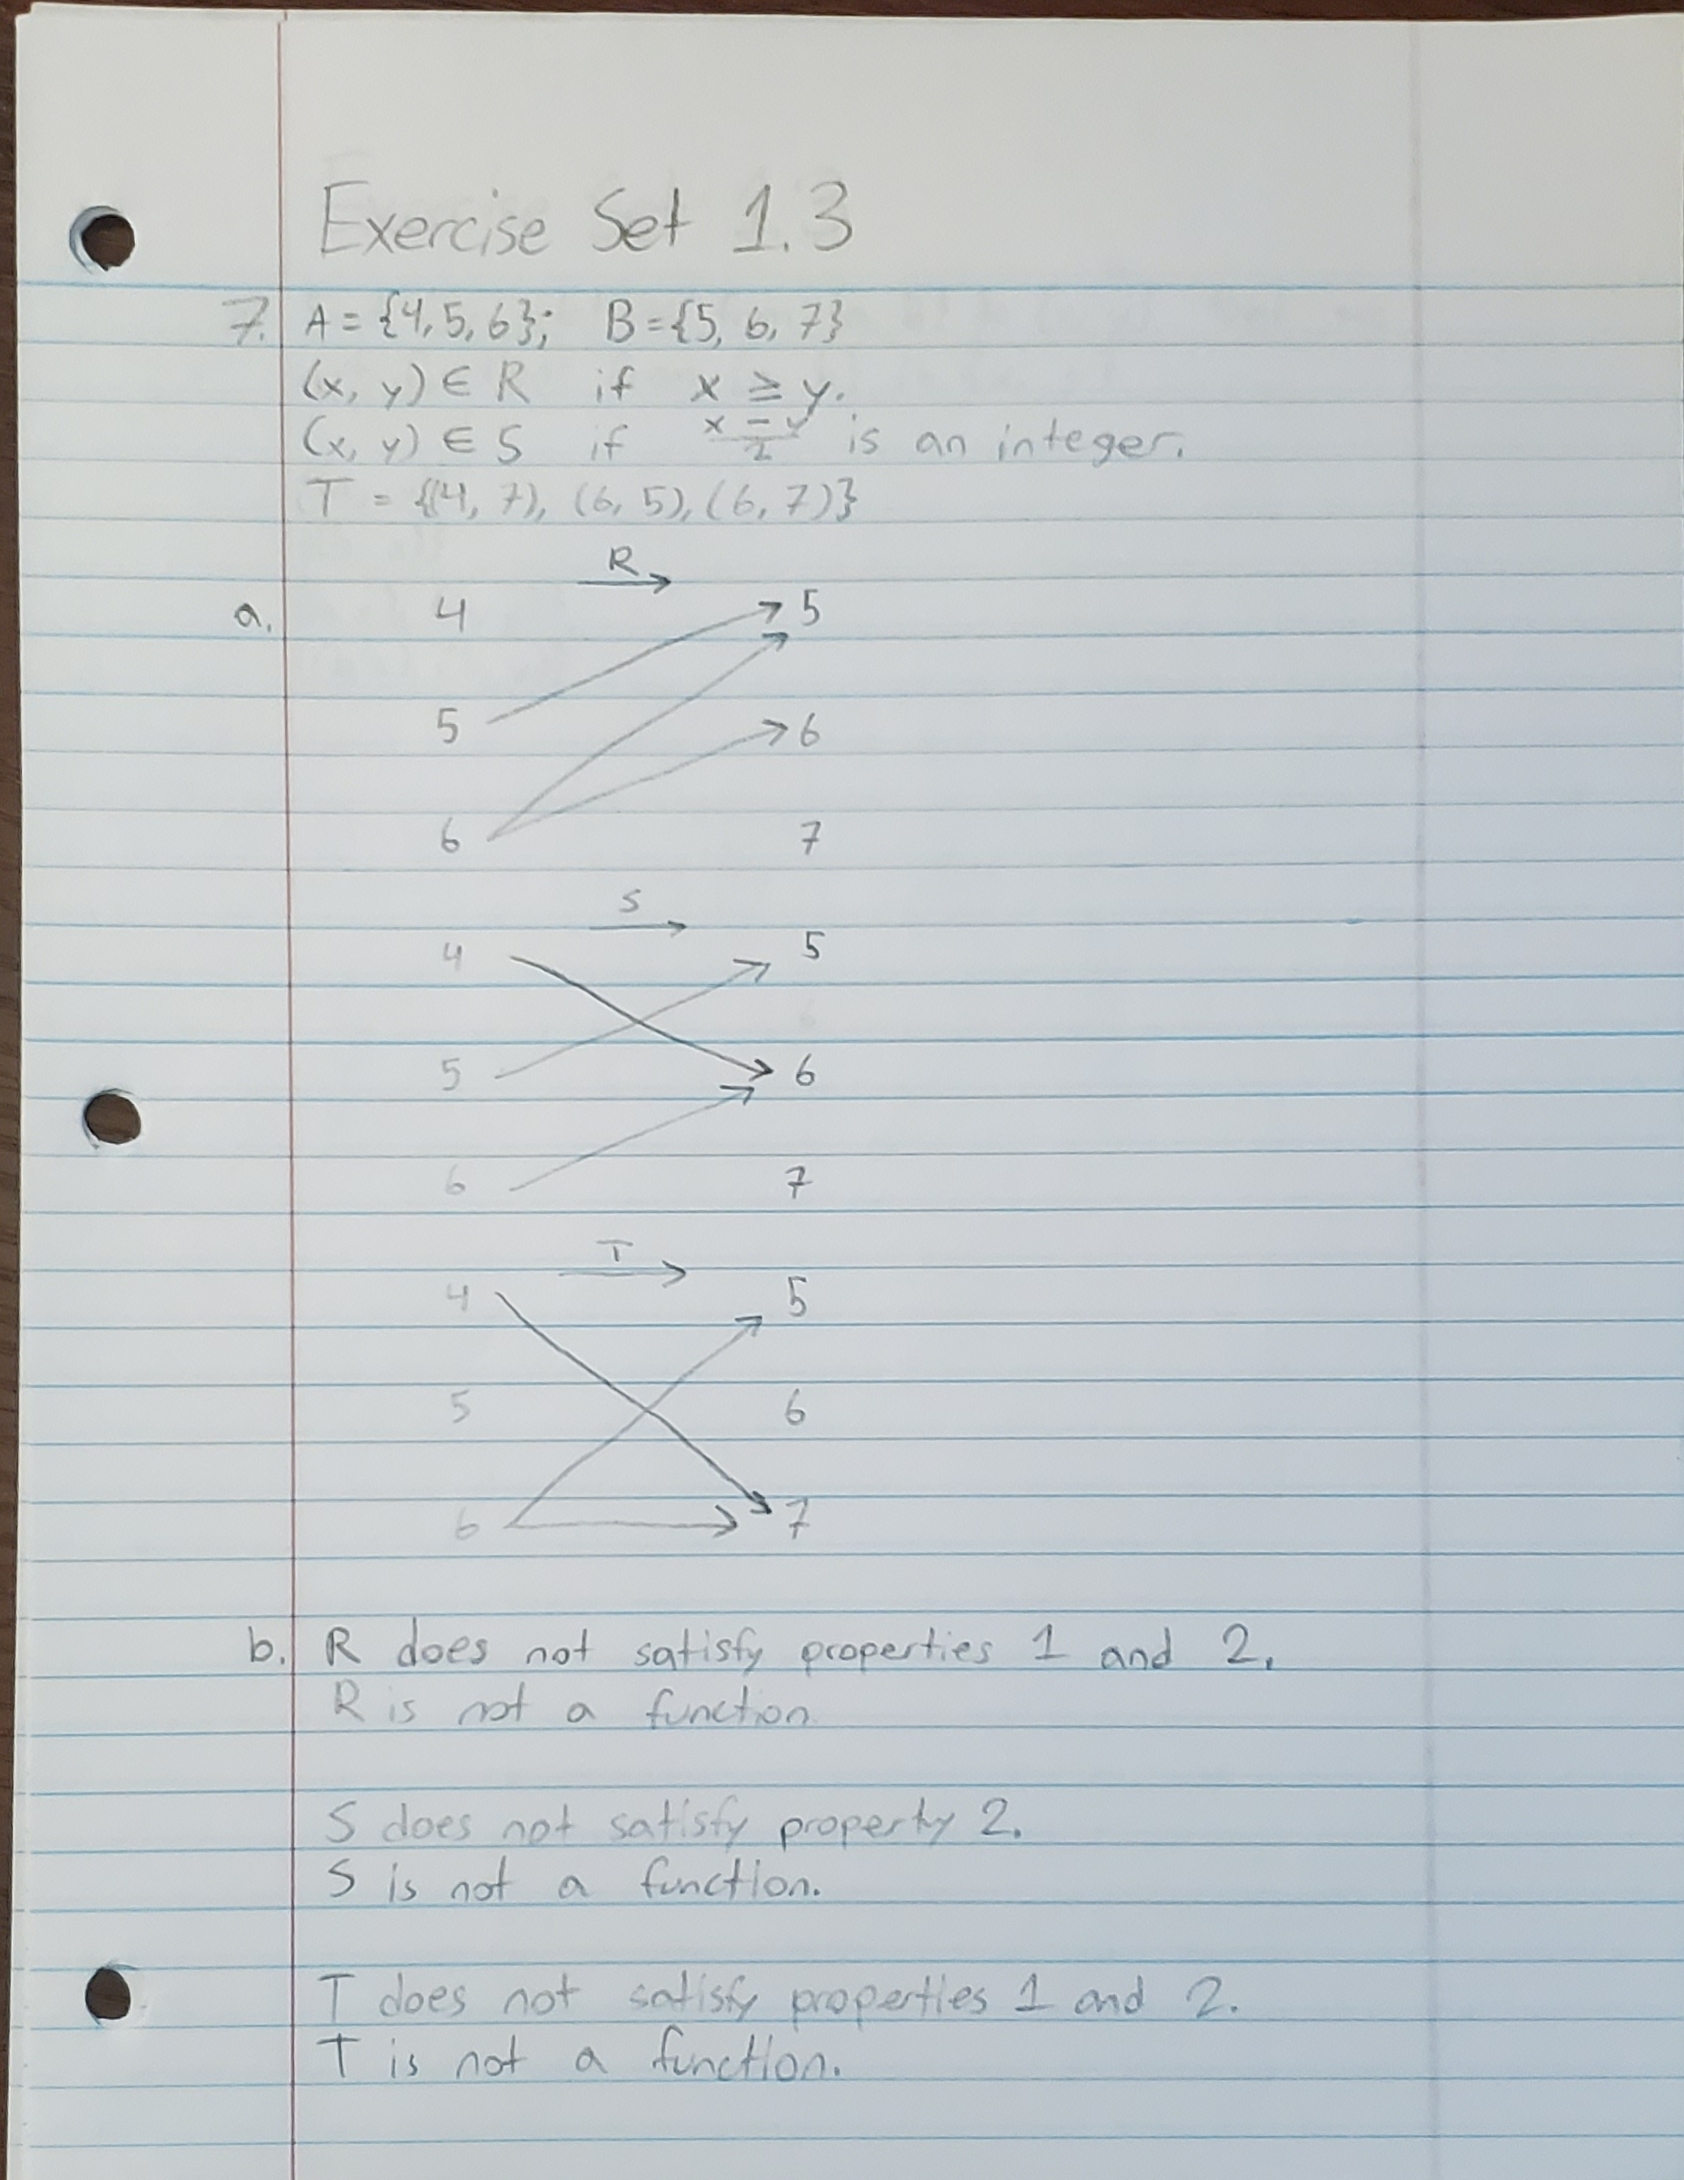 Exercise Set 1.3
7. A = {4, 5, 6}; B = {5, 6, 7}
(x, y) ∈ R if x ≥ y.
(x, y) ∈ S if x - y / 2 is an integer.
T = {(4, 7), (6, 5), (6, 7)}
R
a. 4 5
5 6
6 7
S
4 5
5 6
6 7
T
4 5
5 6
6 7
b. R does not satisfy properties 1 and 2.
R is not a function
S does not satisfy property 2.
S is not a function.
T does not satisfy properties 1 and 2.
T is not a function.